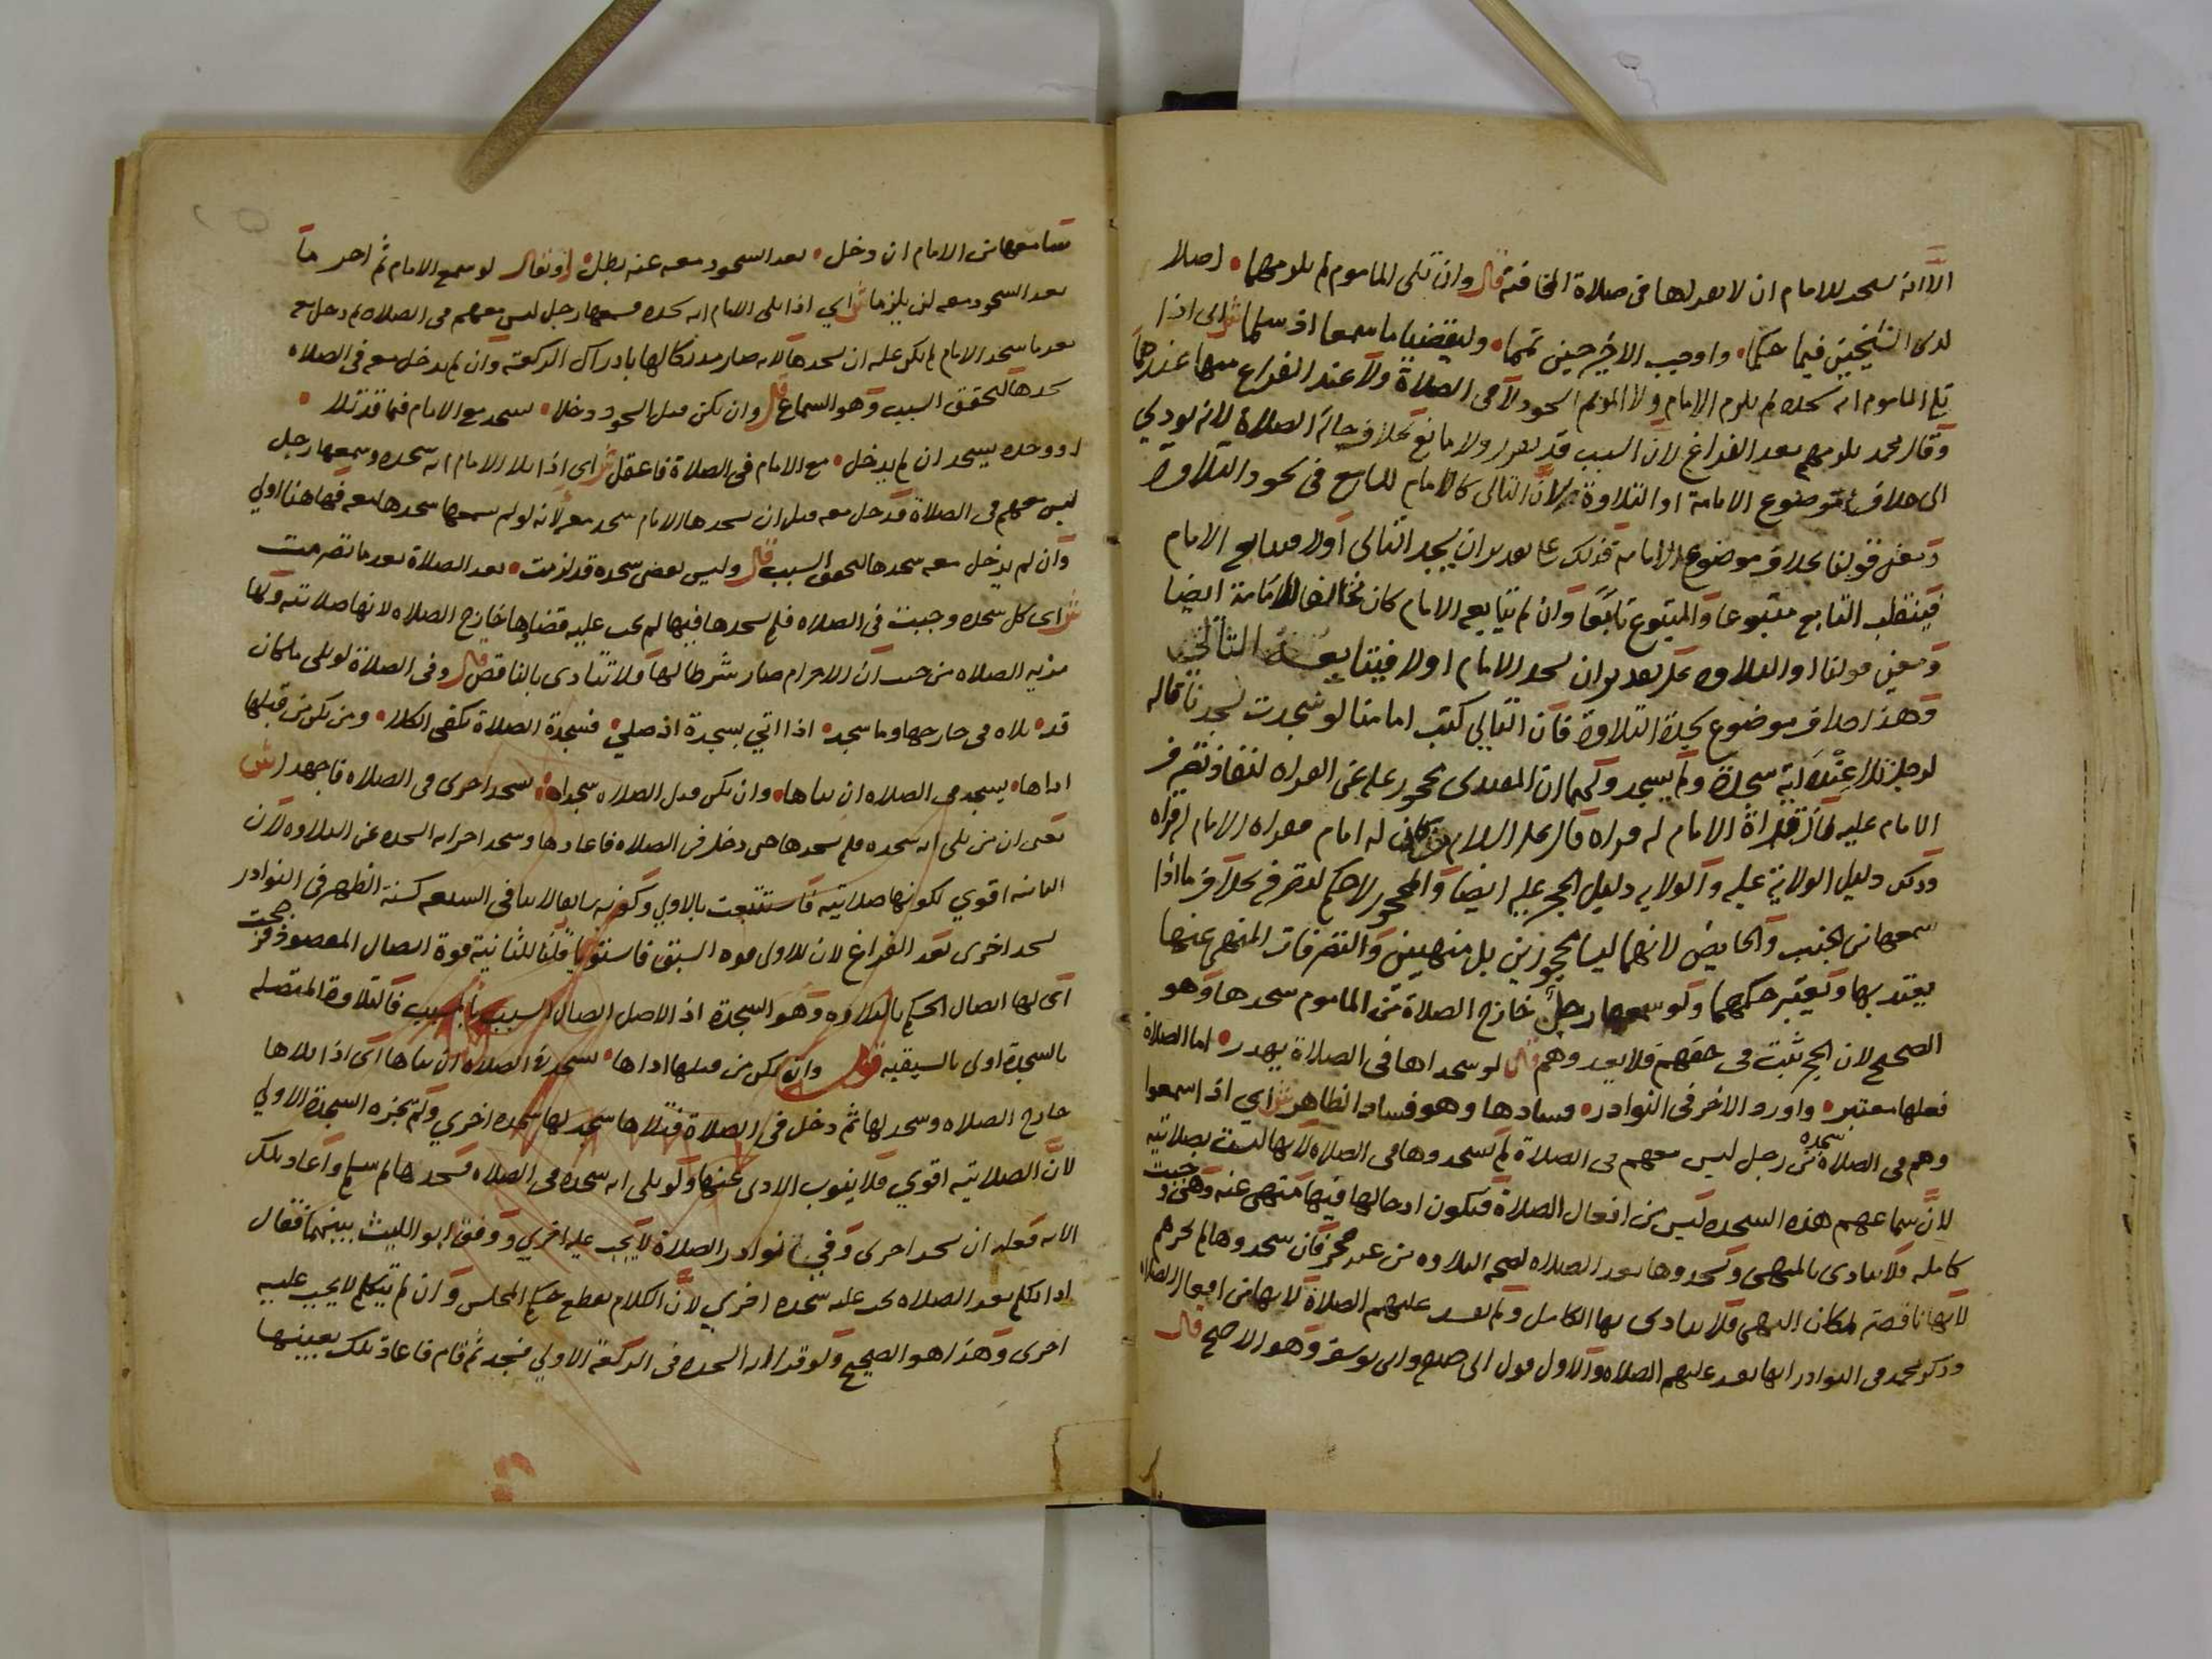 الا انه يستحب للامام ان لا يقراها في صلاة المخافتة قال وان تلى الماموم لم يلزمهما اصلا
لدى الشيخين فيما حكيا واوجب الاخير حين تمما وليقضيا ما سمعا اذ سلما ش اي اذا
تلى الماموم اية سجدة لم يلزم الامام ولا المؤتم السجود لا في الصلاة ولا عند الفراغ منها عندهما
وقال محمد يلزمهم بعد الفراغ لان السبب قد تقرر ولا مانع بخلاف حالة الصلاة لانه يودي
الى خلاف موضوع الامامة او التلاوة لان التالي كالامام للسامع في سجود التلاوة
ومعنى قولنا بخلاف موضوع الامامة فذلك على تقدير ان يسجد التالي اولا فيتابع الامام
فينقلب التابع متبوعا والمتبوع تابعا وان لم يتابعه الامام كان مخالفا للامامة ايضا
ومعنى قولنا او التلاوة على تقدير ان يسجد الامام اولا فيتابعه التالي
وهذا خلاف موضوع سجدة التلاوة فان التالي كنت امامنا لو سجدت لسجدنا قاله
لرجل تلا عنده اية سجدة ولم يسجد ولهما ان المقتدى محجور عليه عن القراة لنفاذ تصرف
الامام عليه لما ان قراة الامام له قراة قال عليه السلام من كان له امام فقراة الامام له قراة
وذلك دليل الولاية عليه والولاية دليل الحجر عليه ايضا والمحجور لا حكم لتصرفه بخلاف ما اذا
سمعها من الجنب والحايض لانهما ليسا محجورين بل منهيين والتصرفات المنهي عنها
يعتد بها وتعتبر حكمها ولو سمعها رجل خارج الصلاة من الماموم سجدها وهو
الصحيح لان الحجر ثبت في حقهم فلا يعدوهم قال لو سجداها في الصلاة يهدر اما الصلاة
فعلها معتبر واورد الاخر في النوادر فسادها وهو فساد الظاهر ش اي اذا سمعوا
وهم في الصلاة سجدة من رجل ليس معهم في الصلاة لم يسجدوها في الصلاة لانها ليست بصلاتية
لان سماعهم هذه السجدة ليس من افعال الصلاة فيكون ادخالها فيها منهي عنه وهي وجبت
كاملة فلا تتادى بالمنهي ويسجدوها بعد الصلاة لصحة التلاوة من غير حجر فان سجدوها لم تجزهم
لانها ناقصة لمكان النهي فلا يتادى بها الكامل ولم تفسد عليهم الصلاة لانها من افعال الصلاة
وذكر محمد في النوادر انها تفسد عليهم الصلاة والاول قول ابي حنيفة وابي يوسف وهو الاصح قال
سامعها من الامام ان دخل بعد السجود معه عنه بطل او نقال لو سمع الامام ثم احرما
بعد السجود معه لن يلزما ش اي اذا تلى الامام اية سجدة فسمعها رجل ليس معهم في الصلاة ثم دخل معه
بعدما سجد الامام لم يكن عليه ان يسجدها لانه صار مدركا لها بادراك الركعة وان لم يدخل معه في الصلاة
سجدها لتحقق السبب وهو السماع قال وان يكن قبل السجود دخلا يسجد مع الامام فيما قد تلا
او وحده يسجد ان لم يدخل مع الامام في الصلاة فاعقل ش اي اذا تلا الامام اية سجدة وسمعها رجل
ليس معهم في الصلاة فدخل معه قبل ان يسجدها الامام سجد معه لانه لو لم يسمعها سجدها معه فهاهنا اولى
وان لم يدخل معه سجدها لتحقق السبب قال وليس تقضى سجدة قد لزمت بعد الصلاة بعد ما تصرمت
ش اي كل سجدة وجبت في الصلاة فلم يسجدها فيها لم يجب عليه قضاوها خارج الصلاة لانها صلاتية ولها
مزية الصلاة من حيث ان الاحرام صار شرطا لها ولا تتادى بالناقص قال وفي الصلاة لو تلى ما كان
قد تلاه في خارجها وما سجد اذا اتي بسجدة اذ صلى فسجدة الصلاة تكفي الكلا ومن يكن من قبلها
اداها يسجد في الصلاة ان تلاها وان يكن قبل الصلاة سجدا يسجد اخرى في الصلاة فاجهدا ش
يعني ان من تلى اية سجدة فلم يسجدها حتى دخل في الصلاة فاعادها وسجد اجزاته السجدة عن التلاوة لان
الثانية اقوى لكونها صلاتية فاستتبعت بالاولى وكونه سابقا لا ينافي التبعية كسنة الظهر في النوادر
يسجد اخرى بعد الفراغ لان للاولى قوة السبق فاستويا قلنا للثانية قوة اتصال المقصود فرجحت
اي لها اتصال الحكم بالتلاوة وهو السجدة اذ الاصل اتصال السبب بالمسبب فالتلاوة المتصلة
بالسجدة اولى بالسبقية قوله وان يكن من قبلها اداها يسجد في الصلاة ان تلاها اي اذا تلاها
خارج الصلاة وسجد لها ثم دخل في الصلاة فتلاها سجد لها سجدة اخرى ولم تجزه السجدة الاولى
لان الصلاتية اقوى فلا ينوب الادنى عنها ولو تلى اية سجدة في الصلاة فسجدها ثم سلم واعاد تلك
الاية فعليه ان يسجد اخرى وفي نوادر الصلاة لا يجب عليه اخرى ووفق ابو الليث بينهما فقال
اذا تكلم بعد الصلاة تجب عليه سجدة اخرى لان الكلام يقطع حكم المجلس وان لم يتكلم لا يجب عليه
اخرى وهذا هو الصحيح ولو قرا اية السجدة في الركعة الاولى فسجد ثم قام فاعاد تلك بعينها